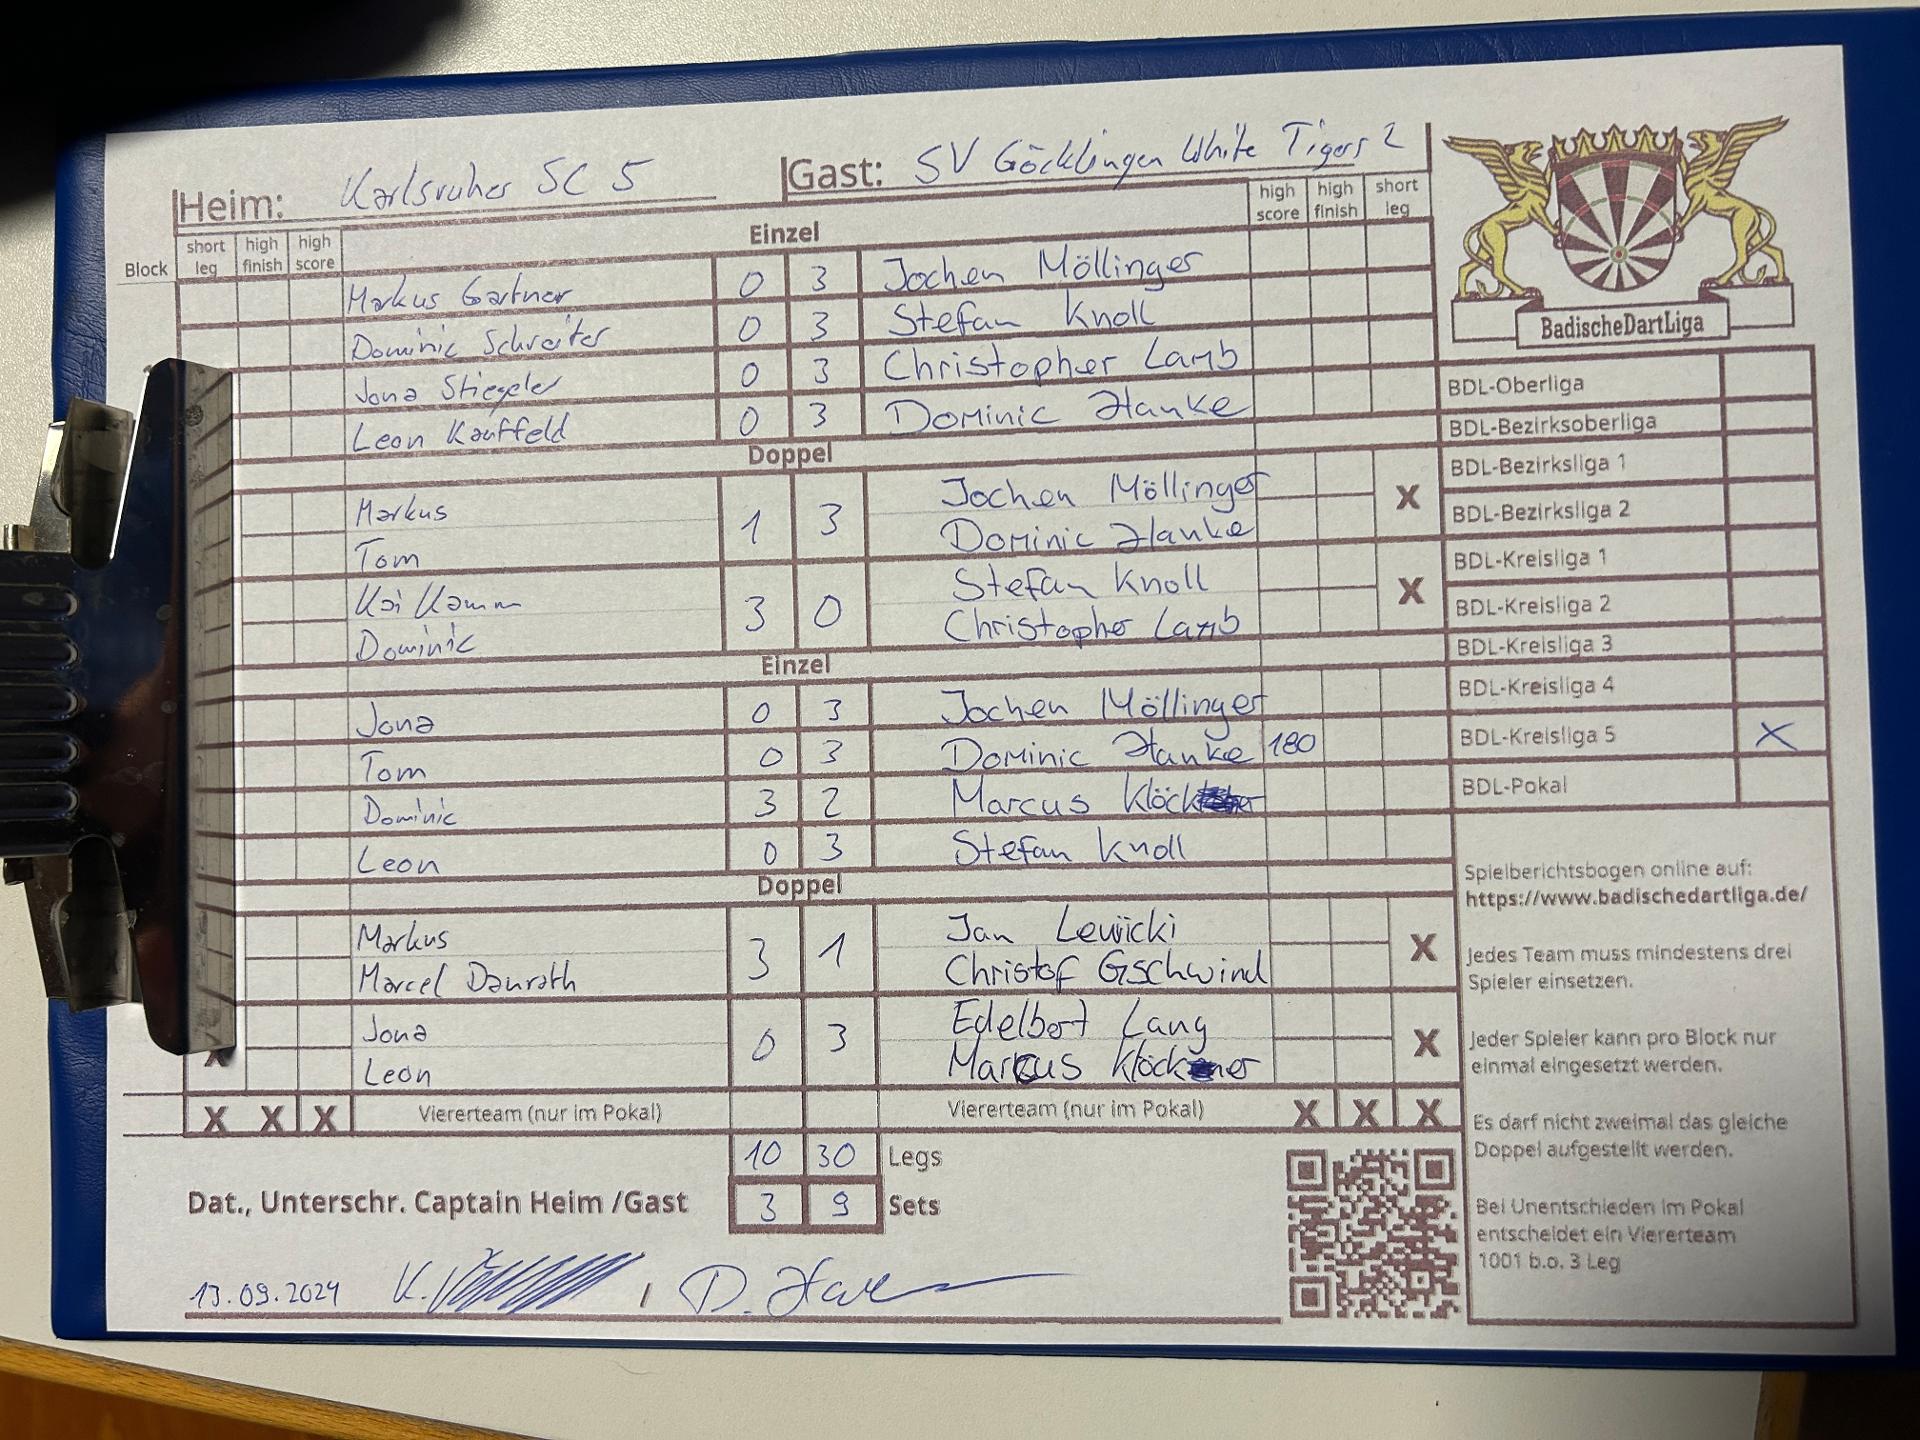 Heim: Karlsruher SC 5 Gast: SV Göcklingen White Tigers 2
Block short leg high finish high score Einzel high score high finish short leg
Markus Gartner 0 3 Jochen Möllinger
Dominic Schreiter 0 3 Stefan Knoll
Jona Stiegeler 0 3 Christopher Lamb
Leon Kauffeld 0 3 Dominic Hanke
Doppel
Markus 1 3 Jochen Möllinger
Tom Dominic Hanke X
Kai Kamm 3 0 Stefan Knoll
Dominic Christopher Lamb X
Einzel
Jona 0 3 Jochen Möllinger
Tom 0 3 Dominic Hanke 180
Dominic 3 2 Marcus
Leon 0 3 Stefan Knoll
Doppel
Markus 3 1 Jan Lewicki
Marcel Danrath Christof Gschwind X
Jona 0 3 Edelbert Lang
X Leon Marcus X
X X X Viererteam (nur im Pokal) Viererteam (nur im Pokal) X X X
10 30 Legs
Dat., Unterschr. Captain Heim /Gast 3 9 Sets
13.09.2024 K. / D. Hanke
BadischeDartLiga
BDL-Oberliga
BDL-Bezirksoberliga
BDL-Bezirksliga 1
BDL-Bezirksliga 2
BDL-Kreisliga 1
BDL-Kreisliga 2
BDL-Kreisliga 3
BDL-Kreisliga 4
BDL-Kreisliga 5 X
BDL-Pokal
Spielberichtsbogen online auf:
https://www.badischedartliga.de/
Jedes Team muss mindestens drei
Spieler einsetzen.
Jeder Spieler kann pro Block nur
einmal eingesetzt werden.
Es darf nicht zweimal das gleiche
Doppel aufgestellt werden.
Bei Unentschieden im Pokal
entscheidet ein Viererteam
1001 b.o. 3 Leg